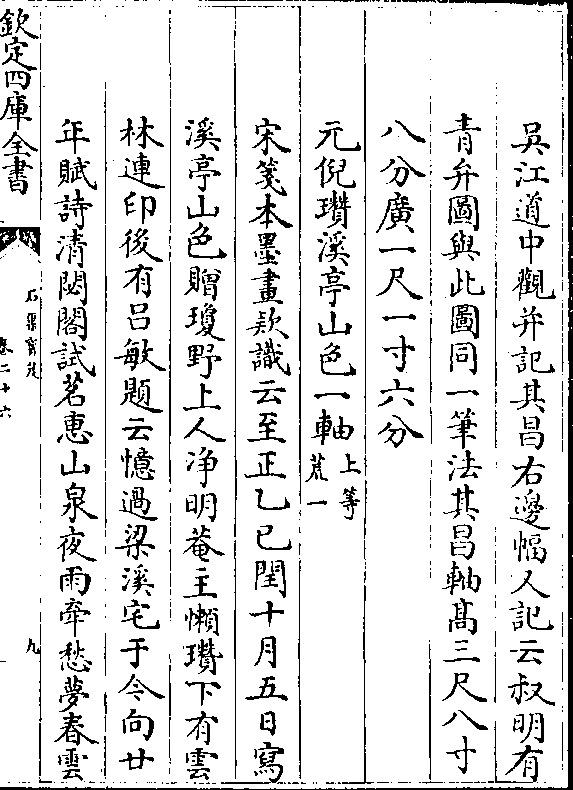 吳江道中觀并記其昌右邊幅人記云叔明有
青弁圖與此圖同一筆法其昌軸髙三尺八寸
八分廣一尺一寸六分
元倪瓚溪亭山色一軸上等荒一
宋箋本墨畫款識云至正乙巳閏十月五日寫
溪亭山色贈瓊野上人净明菴主懶瓚下有雲
林連印後有吕敏題云憶過梁溪宅于今向廿
年賦詩清閟閣試茗惠山泉夜雨牽愁夢春雲
欽定四庫全書
石渠寶笈
卷二十六
九